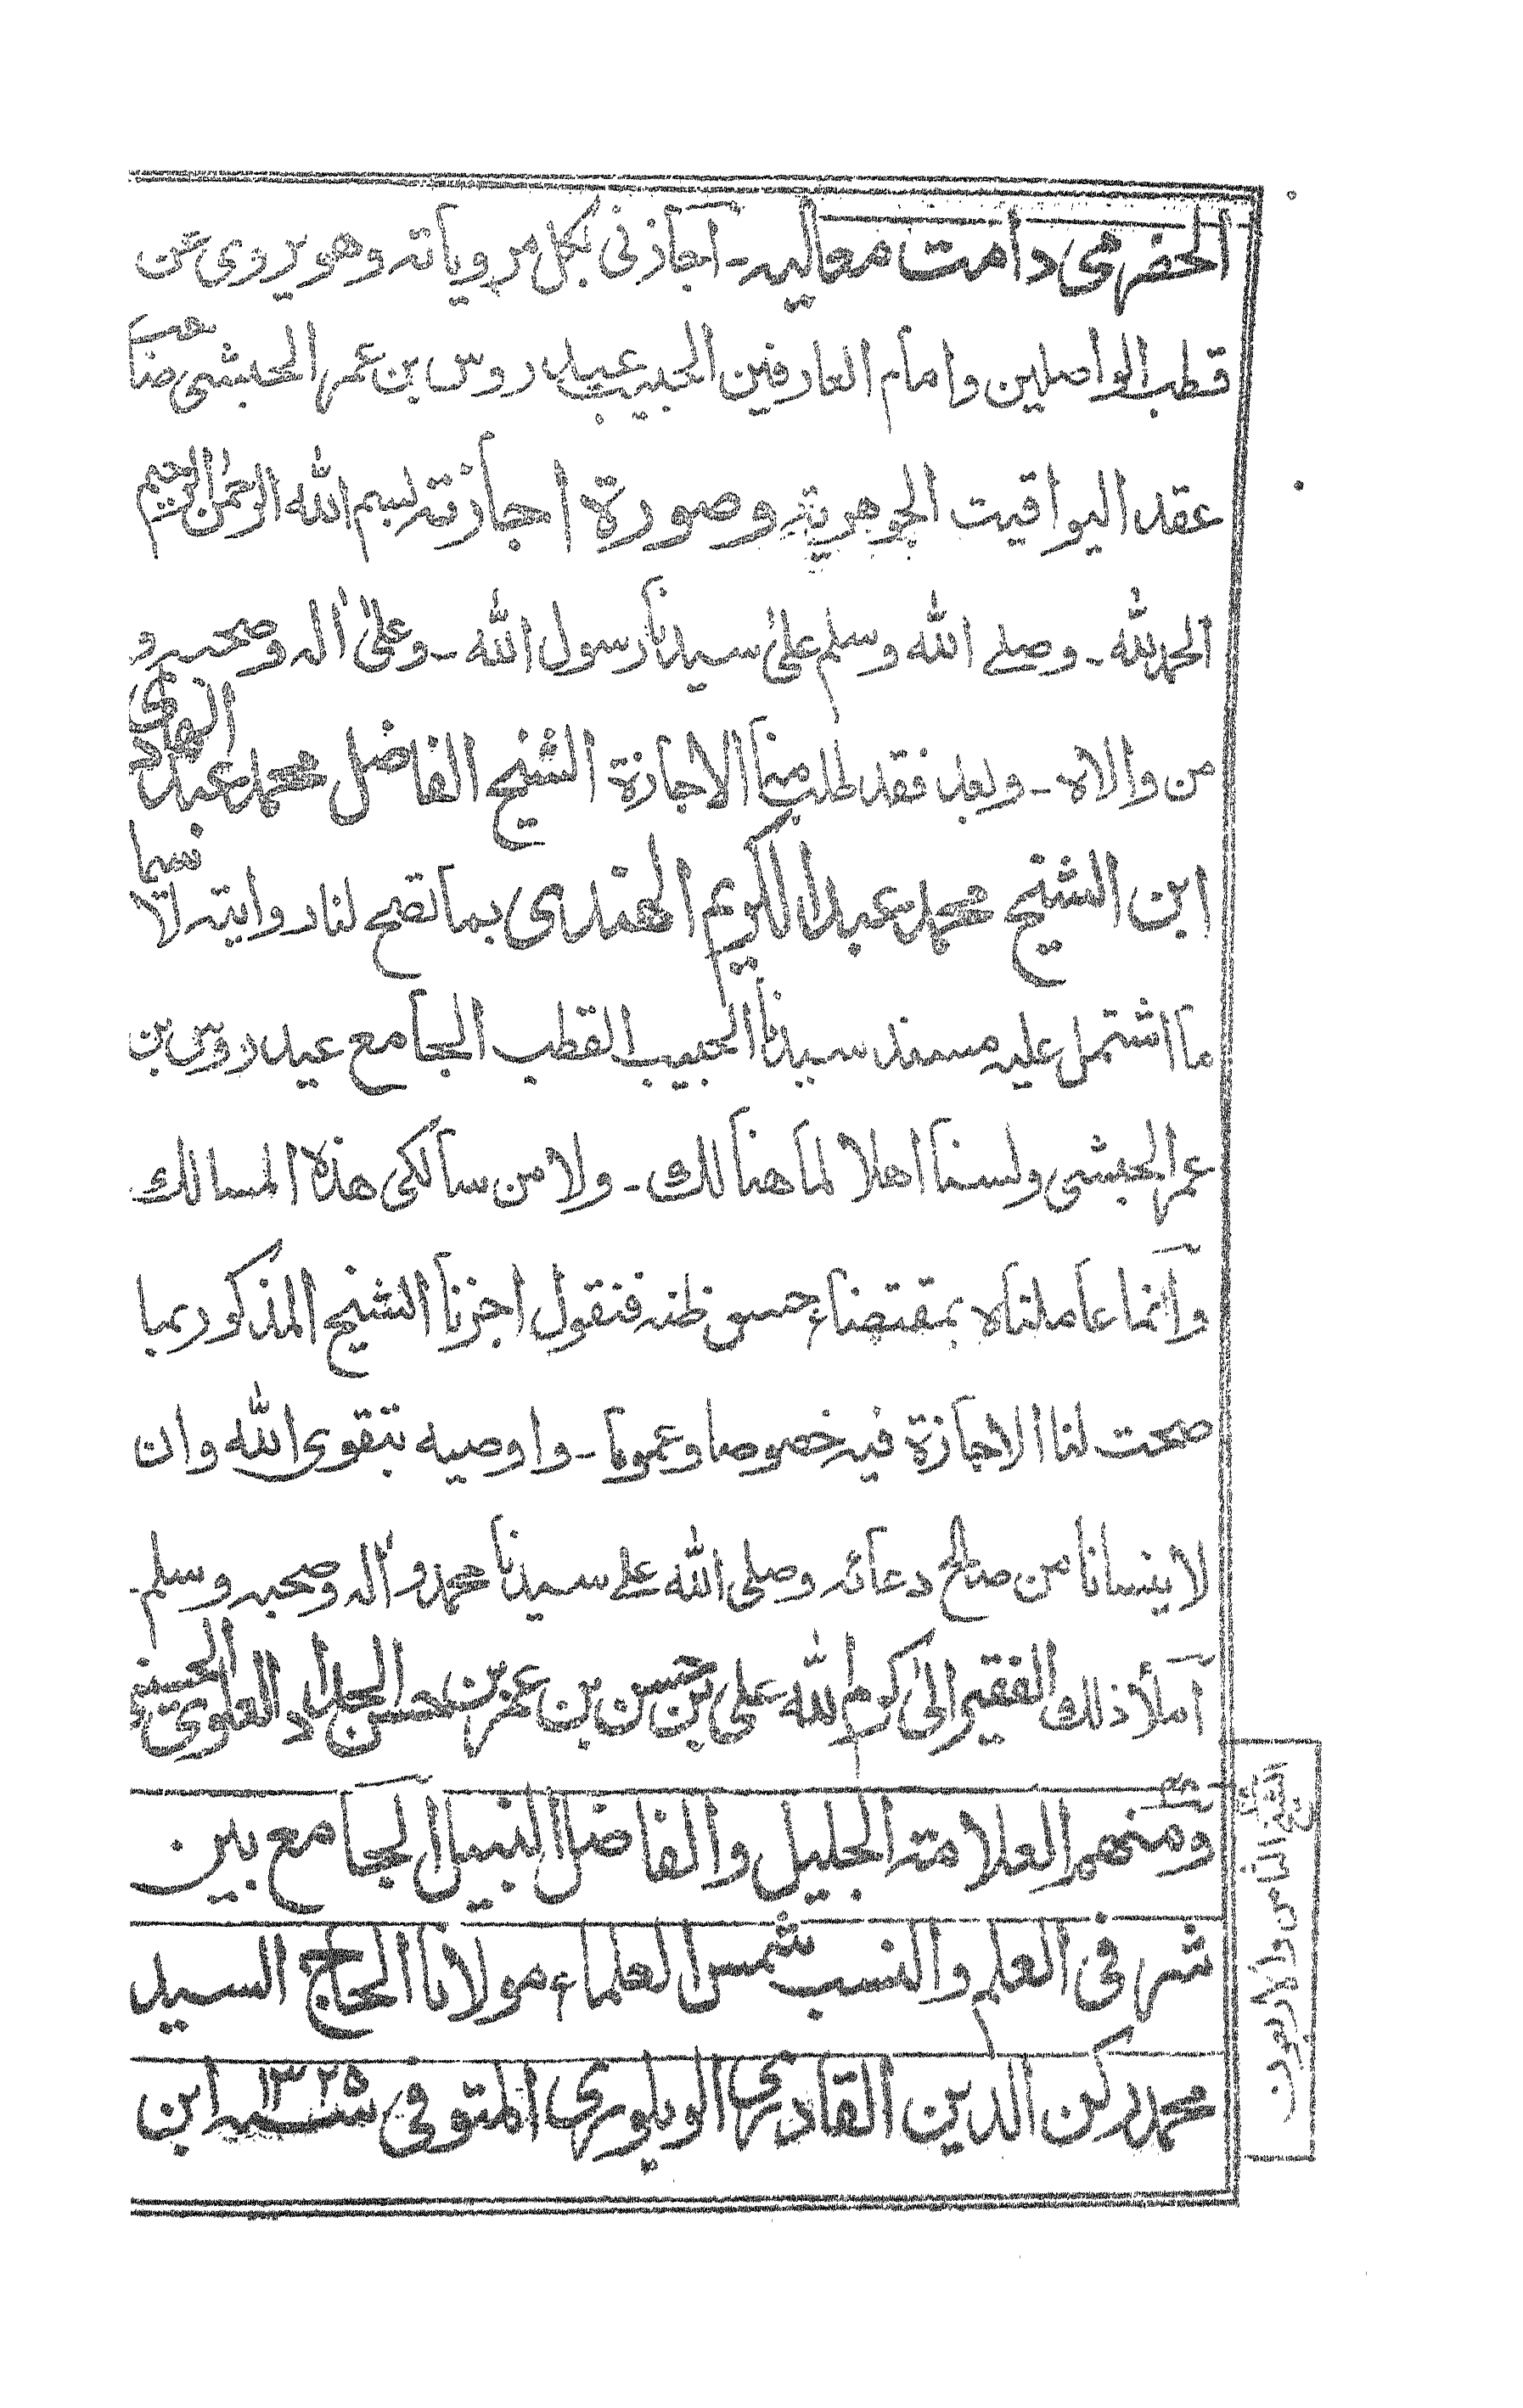 الحضرمي دامت معاليه - اجازني بكل مروياته وهو يروي عن
قطب الواصلين وامام العارفين الحبيب عيدروس بن عمر الحبشي صاحب
عقد اليواقيت الجوهرية وصورة اجازته بسم الله الرحمن الرحيم
الحمد لله - وصلى الله وسلم على سيدنا رسول الله - وعلى اله وصحبه و
من والاه - وبعد فقد طلب منا الاجازة الشيخ الفاضل محمد عبد الهادي
ابن الشيخ محمد عبد الكريم الهندي بما تصح لنا روايته لا سيما
ما اشتمل عليه مسند سيدنا الحبيب القطب الجامع عيدروس بن
عمر الحبشي ولسنا اهلا لما هنالك - ولا من سالكي هذه المسالك
وانما عاملناه بمقتضاء حسن ظنه فنقول اجزنا الشيخ المذكور بما
صحت لنا الاجازة فيه خصوصا وعموما - واوصيه بتقوى الله وان
لا ينسانا من صالح دعائه وصلى الله على سيدنا محمد و اله وصحبه وسلم -
املأ ذلك الفقير الى كرم الله علي بن حسين بن عمر بن حسن الحداد العلوي الحسيني
ومنهم العلامة الجليل والفاضل النبيل الجامع بين
شرفي العلم والنسب شمس العلماء مولانا الحاج السيد
محمد ركن الدين القادري الويلوري المتوفى سنة ١٣٢٥ ابن
الشيخ الثامن والاربعون